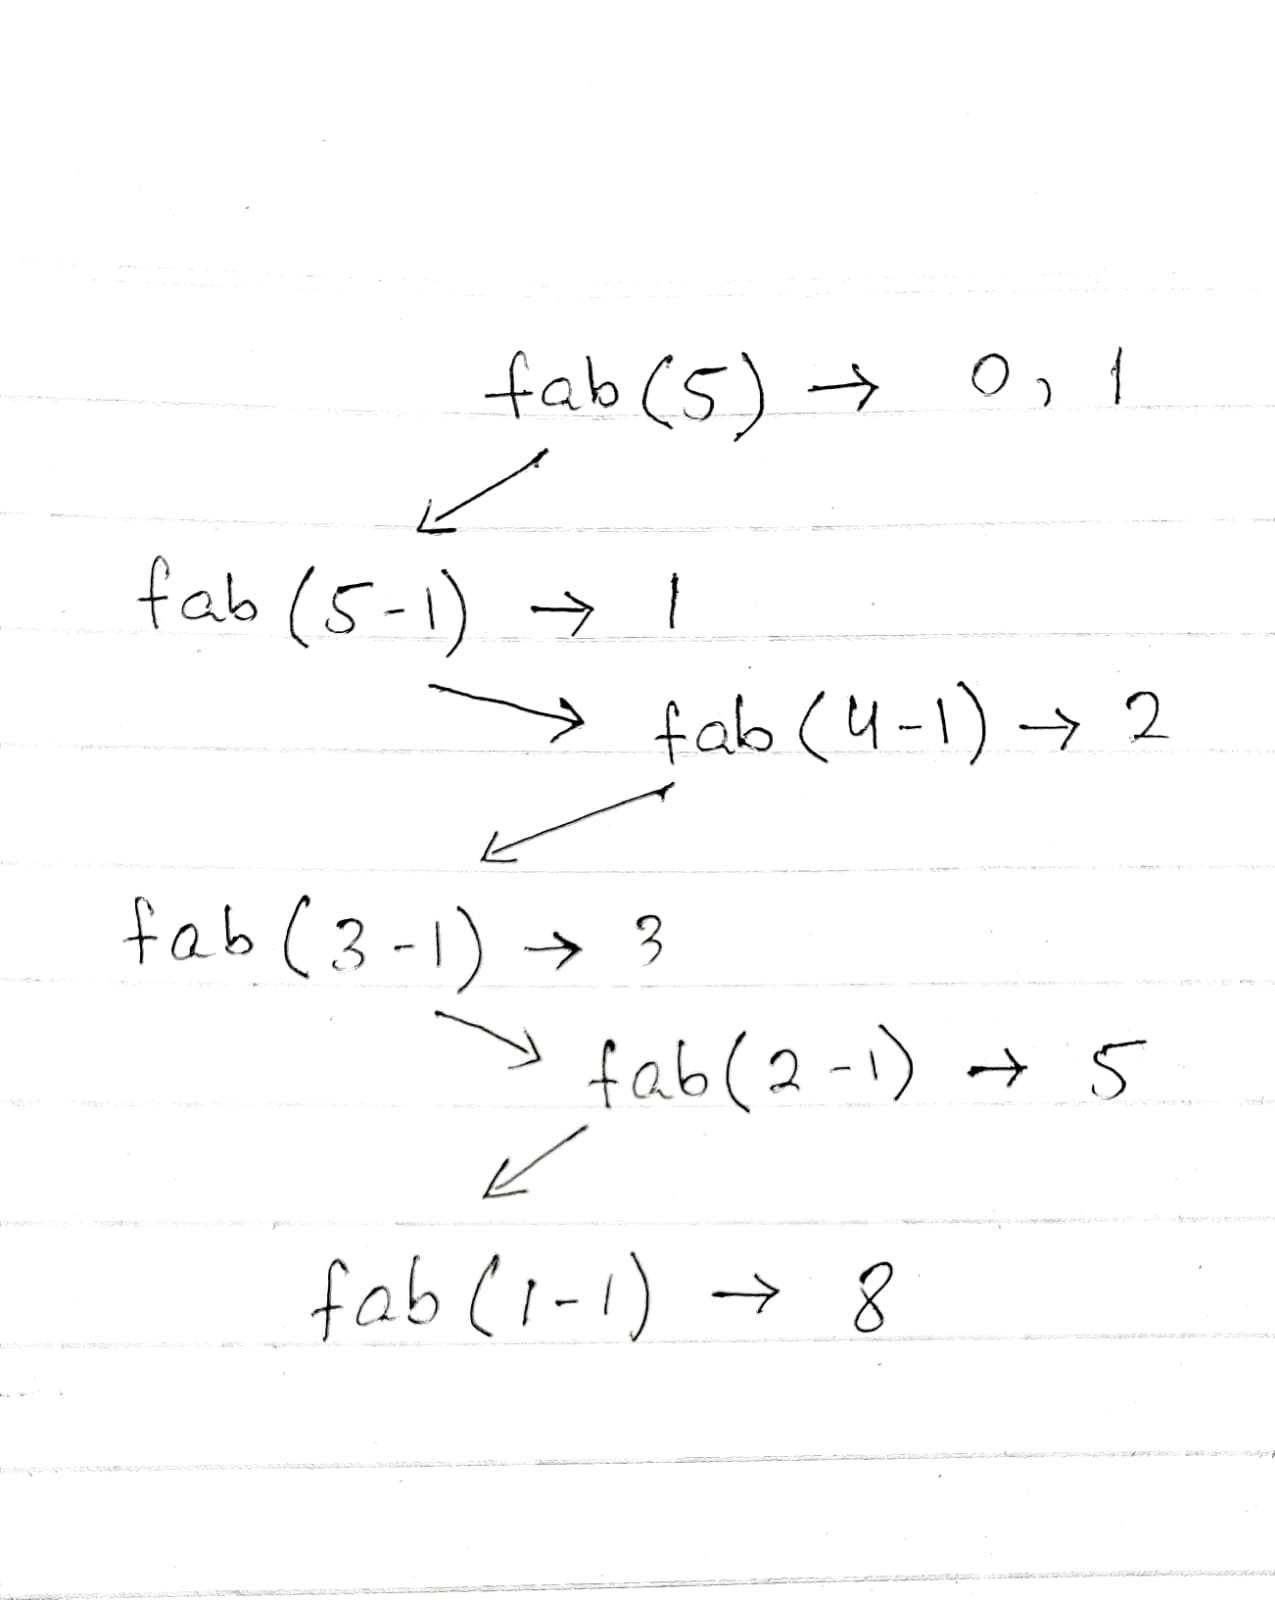 fab(5) → 0, 1
fab(5-1) → 1
fab(4-1) → 2
fab(3-1) → 3
fab(2-1) → 5
fab(1-1) → 8